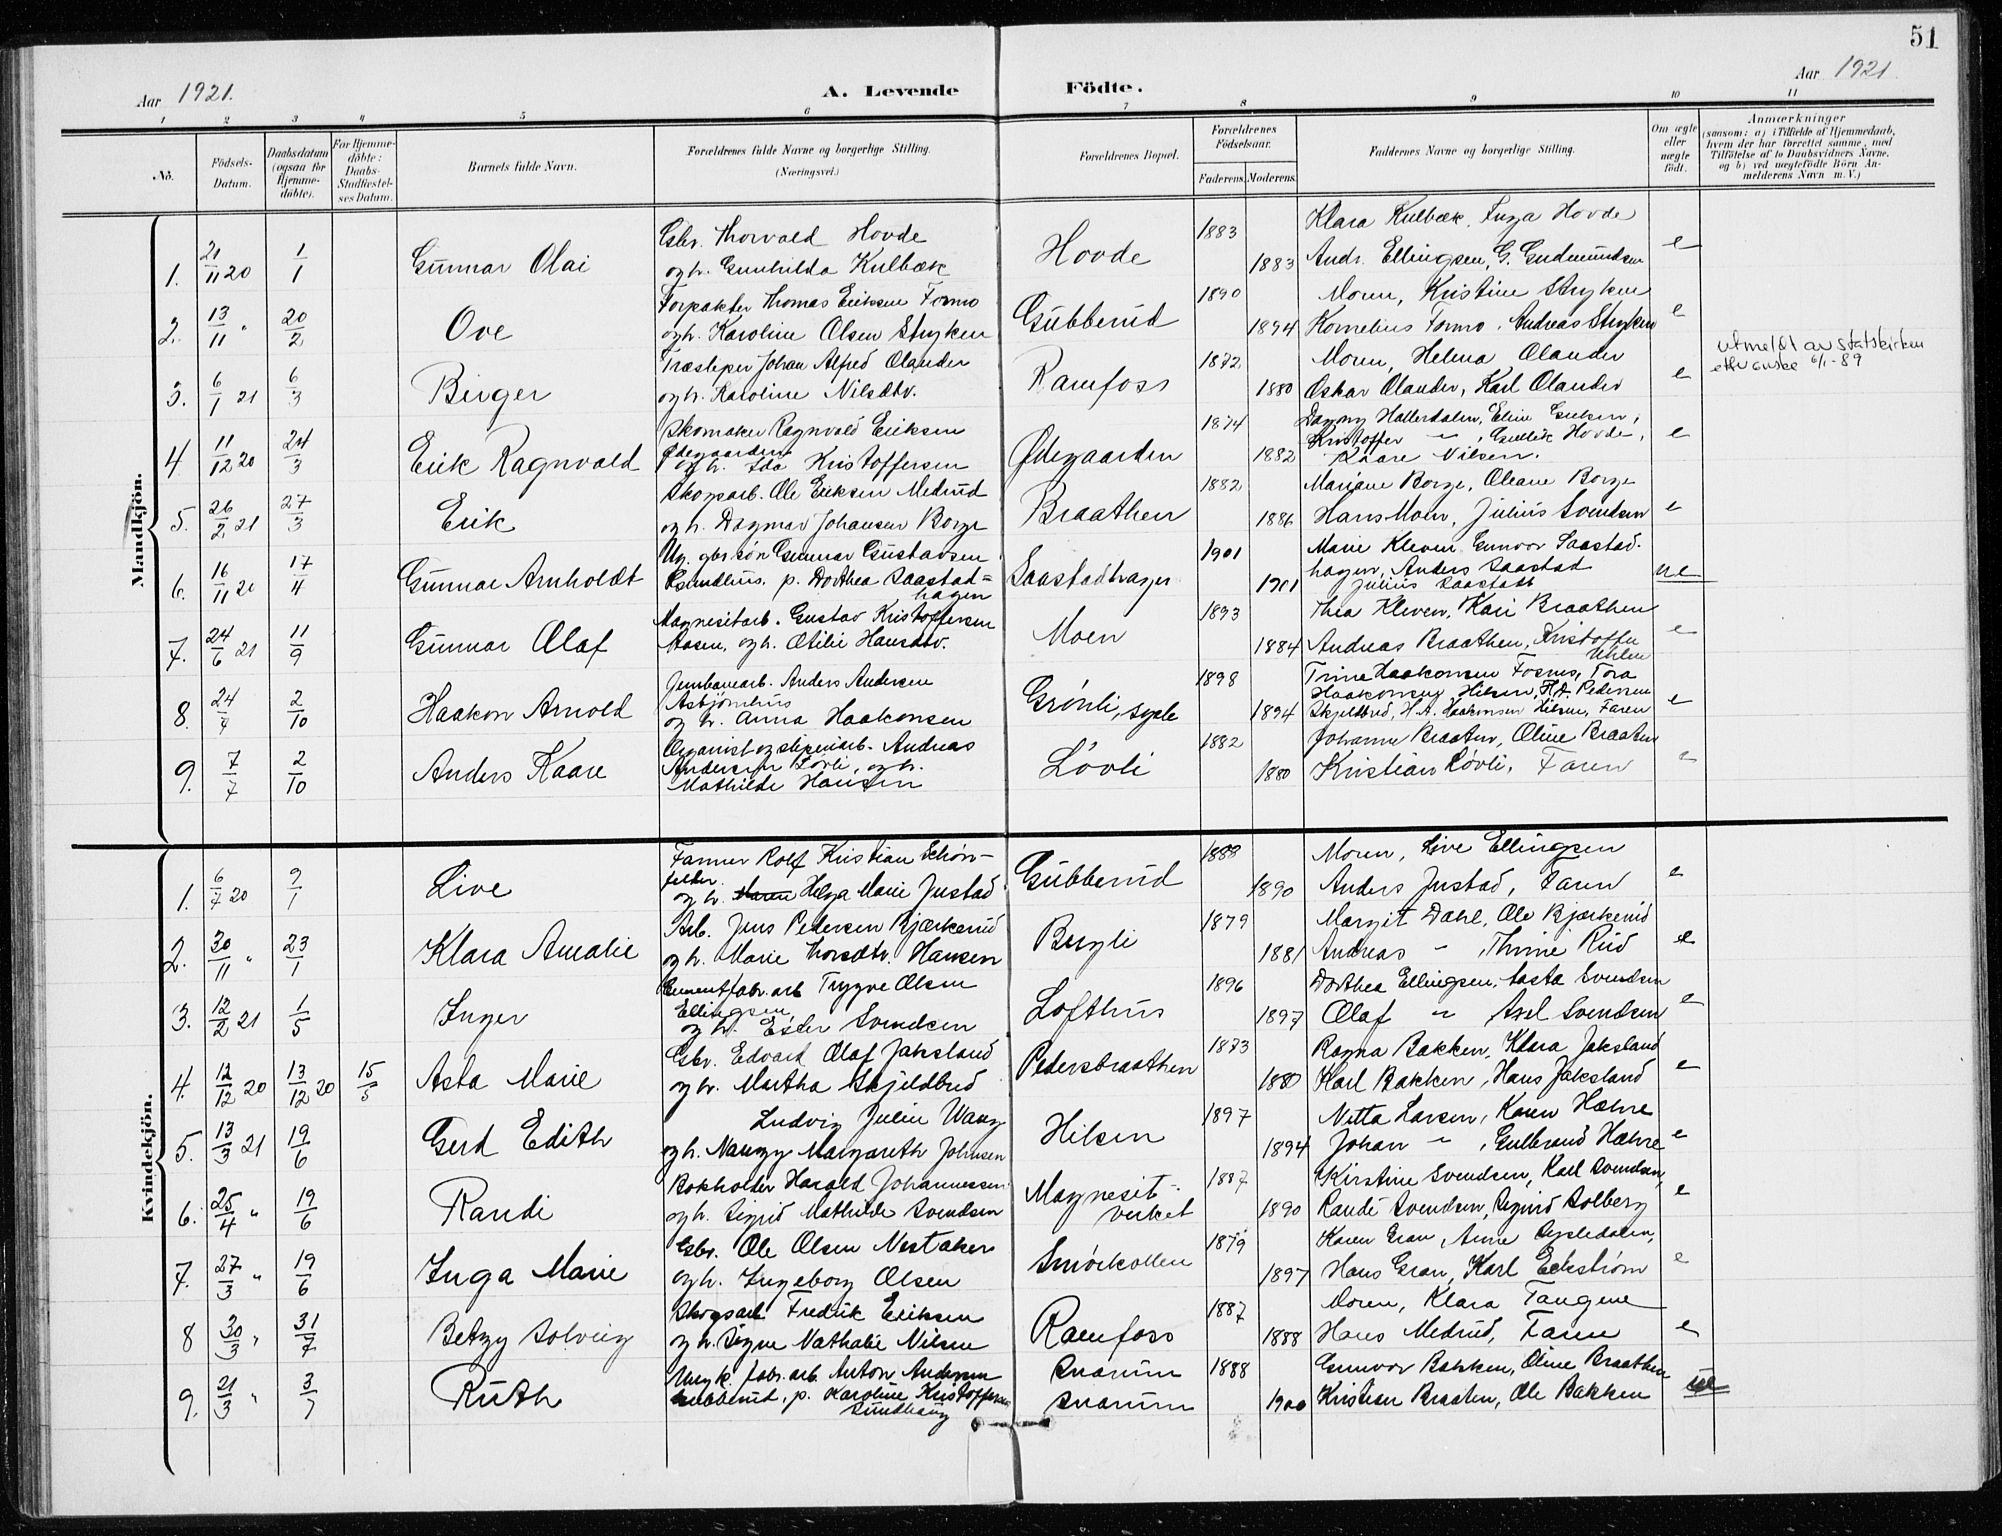 51
Aar 1921.
A. Levende
Födte.
Aar 1921
1 2 3 4 5 6 7 8 9 10 11
No.
Födsels-Datum.
Daabsdatum (ogsaa for Hjemmedöbte).
For Hjemmedöbte: Daabs-Stadfæstelses Datum.
Barnets fulde Navn.
Forældrenes fulde Navne og borgerlige Stilling. (Næringsvei.)
Forældrenes Bopæl.
Forældrenes Födselsaar.
Faderens. Moderens.
Faddernes Navne og borgerlige Stilling.
Om ægte eller uægte födt.
Anmærkninger
(saasom: a) i Tilfælde af Hjemmedaab, hvem der har forrettet samme, med Tilföielse af to Daabsvidners Navne, og b) ved uægtefödte Börn Anmelderens Navn m. V.)
Mandkjön.
1. 21/11 20 1/1 Gunnar Olai
Gbr. Thorvald Hovde
og h. Gunhilda Kulbæk
Hovde 1883 1883
Klara Kulbæk, Inga Hovde
Andr. Ellingsen, G. Gudmundsen
e
2. 13/11 " 20/2 Ove
Forpakter Thomas Eriksen Formo
og h. Karoline Olsen Stryken
Gubberud 1890 1894
Moren, Kristine Stryken
Kornelius Formo, Andreas Stryken
e
3. 6/1 21 6/3 Birger
Træsliper Johan Alfred Olander
og h. Karoline Nilsdtr.
Ramfoss 1872 1880
Moren, Helma Olander
Oskar Olander, Karl Olander
e
utmeldt av statskirken
etter ønske 6/1-89
4. 11/12 20 24/3 Erik Ragnvald
Skomaker Ragnvald Eriksen
Ødegaarden
og h. Ida Kristoffersen
Ødegaarden 1874 1882
Dagny Hallerdalen, Eline Gulsen,
Kristoffer " , Gullik Hovde,
Kaare Nilsen.
e
5. 26/2 21 27/3 Erik
Skogsarb. Ole Eriksen Medrud
og h. Dagmar Johansen Borge
Braathen 1882 1886
Mariane Borge, Oleane Borge
Hans Moen, Julius Svendsen
e
6. 16/11 20 17/4 Gunnar Arnholdt
Ug. gbr.søn Gunnar Gustavsen
Sundhus, p. Dorthea Saastad=
hagen
Saastadhagen 1901 1901
Marie Kleven, Gunvor Saastad-
hagen, Anders Saastad
Julius Saastad
ue
7. 24/6 21 11/9 Gunnar Olaf
Magnesitarb. Gustav Kristoffersen
Moen, og h. Otilie Hansdtr.
Moen 1893 1884
Thea Kleven, Kari Braathen
Andreas Braathen, Kristoffer
Uhlen
e
8. 24/7 2/10 Haakon Arnold
Jernbanearb. Anders Andersen
Asbjørnhus
og h. Anna Haakonsen
Grønli, Sysle 1898 1894
Trine Haakonsen Fosnes, Tora
Haakonsen Hilsen, H.A. Pedersen
Skjeldbred, H.A. Haakonsen Hilsen, Faren
e
9. 7/7 2/10 Anders Kaare
Organist og sliperiarb. Andreas
Andersen Løvli, og h.
Mathilde Hansen
Løvli 1882 1880
Johanne Braaten, Oline Braaten
Kristian Løvli, Faren
e
Kvindekjön.
1. 6/7 20 9/1 Live
Farmer Rolf Kristian Schøn-
felder
og h. Maren Helga Marie Justad
Gubberud 1888 1890
Moren, Live Ellingsen
Anders Justad, Faren
e
2. 30/11 " 23/1 Klara Amalie
Arb. Jens Pedersen Bjærkerud
og h. Marie Thorsdtr. Hansen
Bugli 1879 1881
Margit Dahl, Ole Bjærkerud
Andreas " , Thrine Rud
e
3. 12/2 21 1/5 Inger
Cementfabr. arb Trygve Olsen
Ellingsen
og h. Ester Svendsen
Lofthus 1896 1897
Dorthea Ellingsen, Aasta Svendsen
Olaf " Axel Svendsen
e
4. 12/12 20 13/12 20 15/5 Asta Marie
Gbr. Edvard Olaf Jaksland
og h. Martha Skjeldbred
Pedersbraathen 1873 1880
Ragna Bakken, Klara Jaksland
Karl Bakken, Hans Jaksland
e
5. 13/3 21 19/6 Gerd Edith
Ludvig Julin Wang
og h. Nanzy Margareth Johnsen
Hilsen 1897 1894
Netta Larsen, Karen Hæhre
Johan " , Gulbrand Hæhre
e
6. 25/4 " 19/6 Randi
Bokholder Harald Johannessen
og h. Sigrid Mathilde Svendsen
Magnesit-
verket 1887 1890
Kirstine Svendsen, Karl Svendsen,
Randi Svendsen, Sigurd Solberg
e
7. 27/3 " 19/6 Inga Marie
Gbr. Ole Olsen Nestaker
og h. Ingeborg Olsen
Smørkollen 1879 1897
Karen Gran, Anne Sysledalen,
Hans Gran, Karl Eckstrøm
e
8 30/3 " 31/7 Betzy Solveig
Skogsarb Fredrik Eriksen
og h. Signe Nathalie Nilsen
Ramfoss 1887 1888
Moren, Klara Tangene
Hans Medrud, Faren
e
9. 21/3 " 3/7 Ruth
Ungk. fabr. arb. Anton Andersen
Gubberud, p. Karoline Kristoffersen
Sundhaug
Snarum 1888
Snarum 1900
Gunvor Bakken, Oline Braathen
Kristian Braaten, Ole Bakken
ue